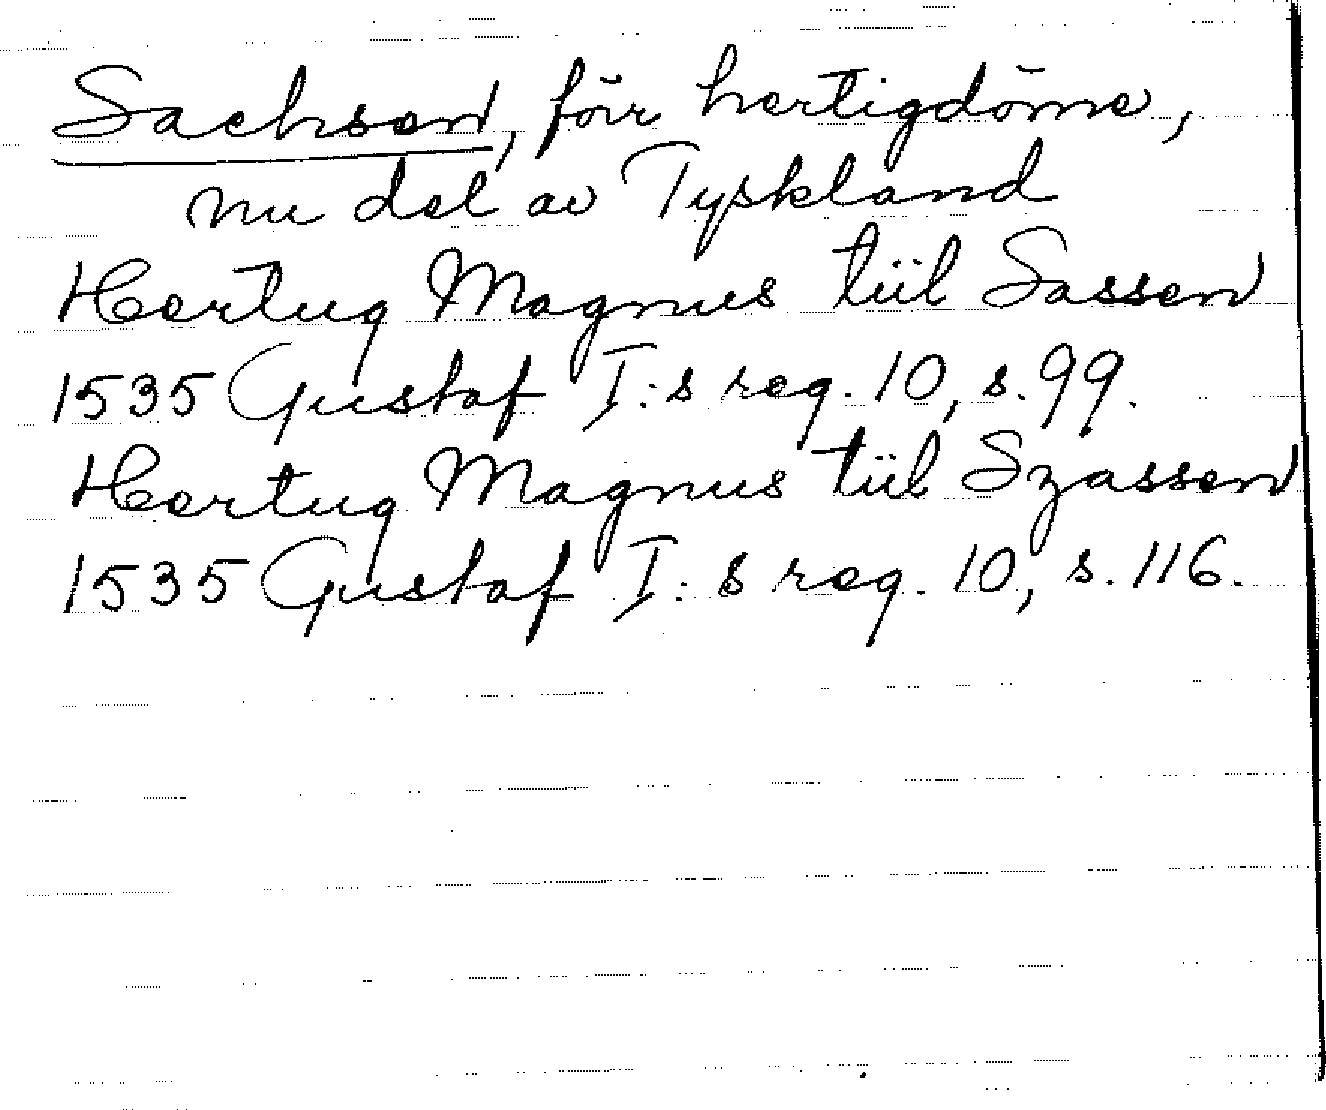 Sachsen, förr hertigdöme,
nu del av Tyskland
Hertug Magnus tiil Sassen
1535 Gustaf I:s reg. 10, s. 99.
Hertug Magnus tiil Szassen
1535 Gustaf I:s reg. 10, s. 116.